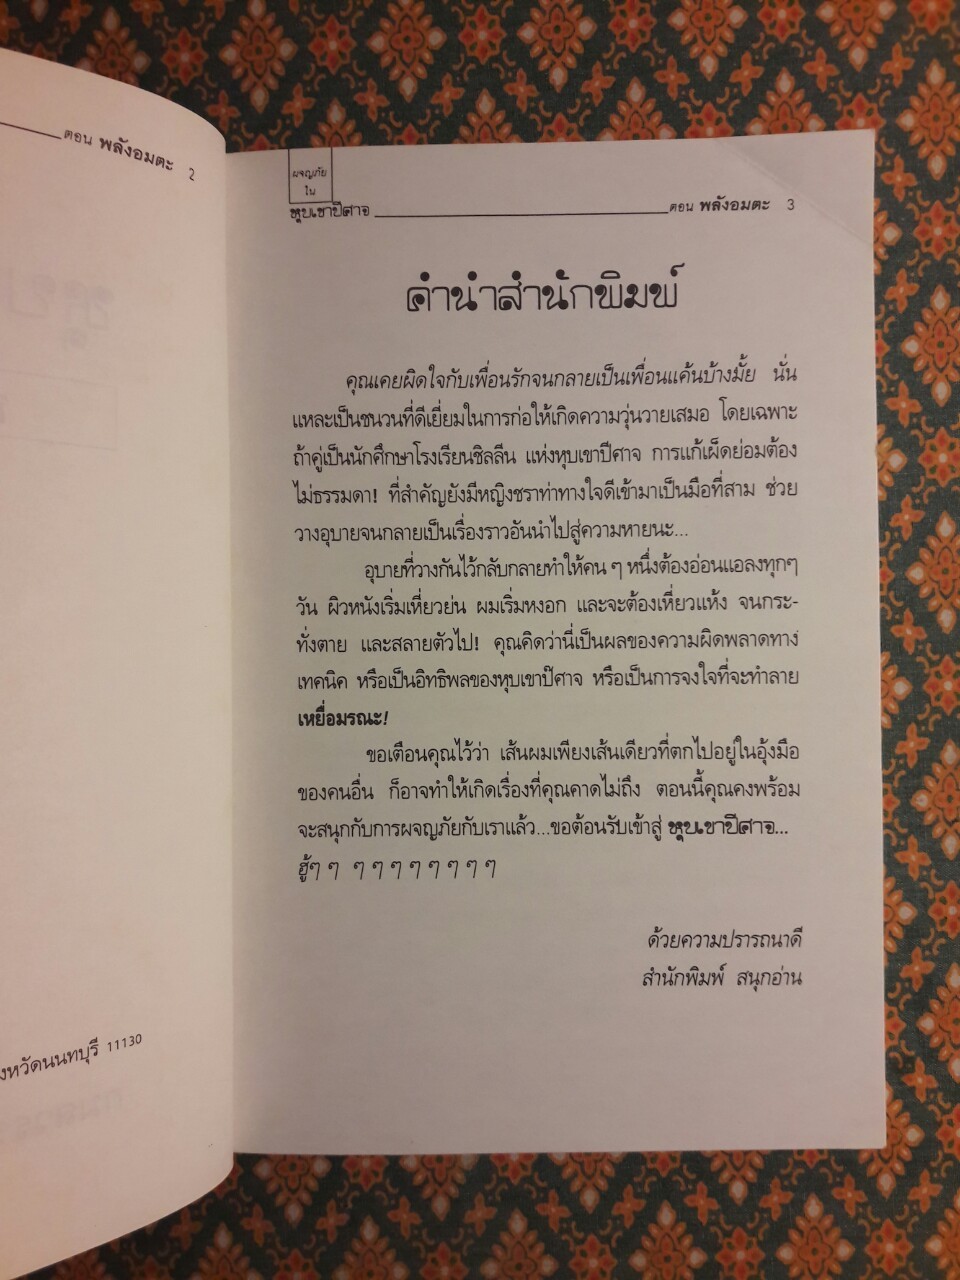 ตอน พลังอมตะ 2
งหวัดนนทบุรี 11130
ผจญภัย
ใน
หุบเขาปีศาจ ตอน พลังอมตะ 3
คำนำสำนักพิมพ์
คุณเคยผิดใจกับเพื่อนรักจนกลายเป็นเพื่อนแค้นบ้างมั้ย นั่น
แหละเป็นชนวนที่ดีเยี่ยมในการก่อให้เกิดความวุ่นวายเสมอ โดยเฉพาะ
ถ้าคู่เป็นนักศึกษาโรงเรียนชิลลีน แห่งหุบเขาปีศาจ การแก้เผ็ดย่อมต้อง
ไม่ธรรมดา! ที่สำคัญยังมีหญิงชราท่าทางใจดีเข้ามาเป็นมือที่สาม ช่วย
วางอุบายจนกลายเป็นเรื่องราวอันนำไปสู่ความหายนะ...
อุบายที่วางกันไว้กลับกลายทำให้คน ๆ หนึ่งต้องอ่อนแอลงทุกๆ
วัน ผิวหนังเริ่มเหี่ยวย่น ผมเริ่มหงอก และจะต้องเหี่ยวแห้ง จนกระ-
ทั่งตาย และสลายตัวไป! คุณคิดว่านี่เป็นผลของความผิดพลาดทาง
เทคนิค หรือเป็นอิทธิพลของหุบเขาปีศาจ หรือเป็นการจงใจที่จะทำลาย
เหยื่อมรณะ!
ขอเตือนคุณไว้ว่า เส้นผมเพียงเส้นเดียวที่ตกไปอยู่ในอุ้งมือ
ของคนอื่น ก็อาจทำให้เกิดเรื่องที่คุณคาดไม่ถึง ตอนนี้คุณคงพร้อม
จะสนุกกับการผจญภัยกับเราแล้ว...ขอต้อนรับเข้าสู่ หุบเขาปีศาจ...
ฮู้ๆ ๆ ๆ ๆ ๆ ๆ ๆ ๆ ๆ ๆ
ด้วยความปรารถนาดี
สำนักพิมพ์ สนุกอ่าน